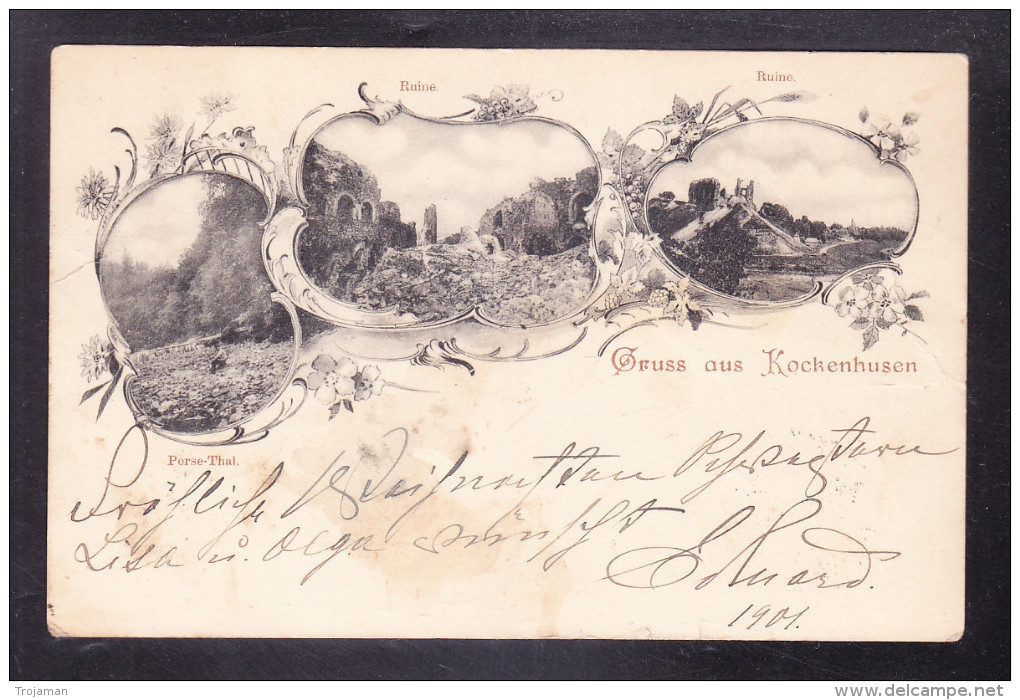 Ruine.
Ruine.
Gruss aus Kockenhusen
Perse-Thal.
Fröhliche Weihnachten Schwestern
Lisa u. Olga wünscht Eduard.
1901.
Trojaman
www.delcampe.net